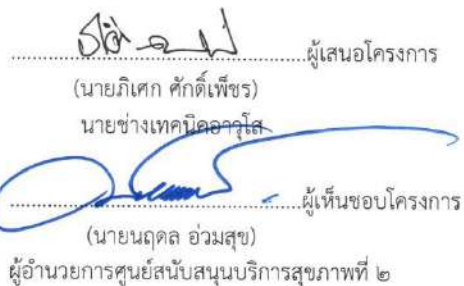 ผู้เสนอโครงการ
(นายภิเศก ศักดิ์เพ็ชร)
นายช่างเทคนิคอาวุโส
ผู้เห็นชอบโครงการ
(นายนฤดล อ่วมสุข)
ผู้อำนวยการศูนย์สนับสนุนบริการสุขภาพที่ ๒